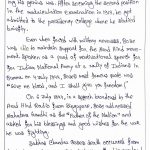 glorious age. After securing the second position
the matriculation Examination in 1913, he got
admitted to the presidency college where he studied
briefly.
Even when faced with military reverses, Bose
was able to maintain support for the Azad Hind move-
ment. Spoken as a part of a motivational speech for
the Indian National Army at a rally of Indians in
Burma on 4 July 1944, Bose's most famous quote was
"Give me blood, and I shall give you freedom!"
On 6 July 1944, in a speech broadcast by the
Azad Hind Radio from Singapore, Bose addressed
Mahatma Gandhi as the "Father of the Nation" and
asked for his blessings and good wishes for the war
he was fighting.
Subhas Chandra Bose's death occurred from